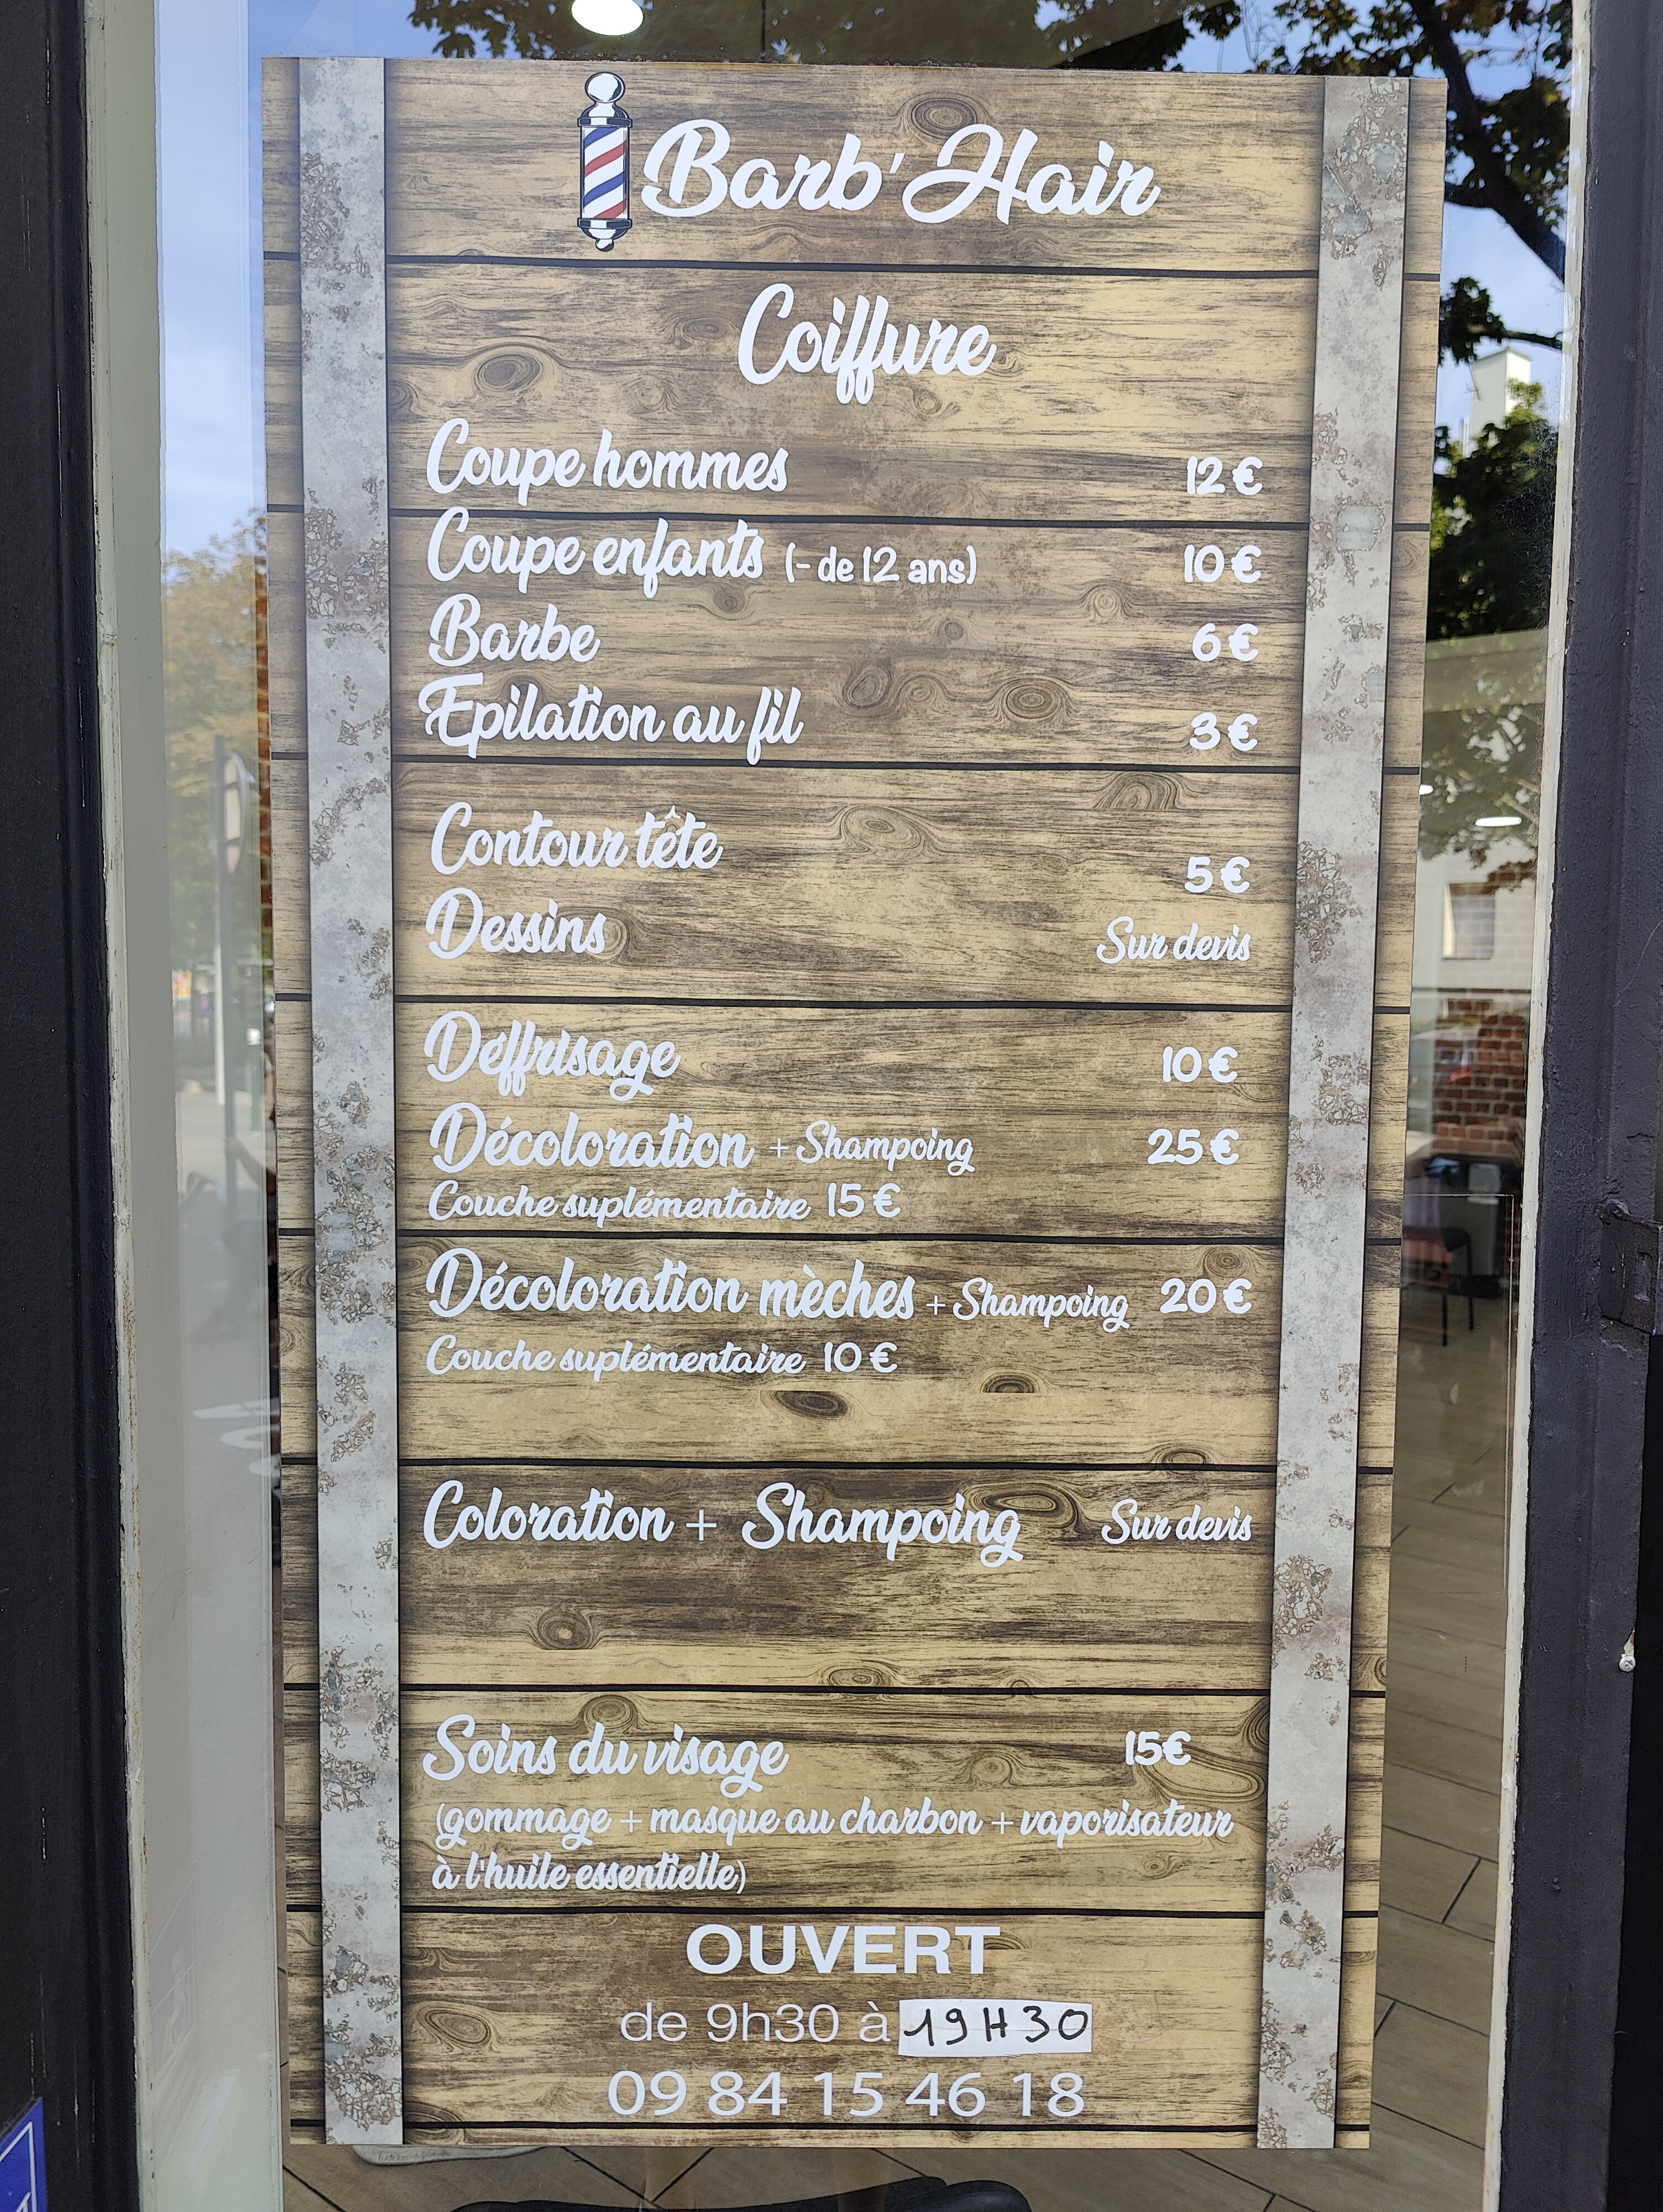 Barb'Hair
Coiffure
Coupe hommes 12€
Coupe enfants (- de 12 ans) 10€
Barbe 6€
Epilation au fil 3€
Contour tête 5€
Dessins Sur devis
Déffrisage 10€
Décoloration + Shampoing 25€
Couche suplémentaire 15€
Décoloration mèches + Shampoing 20€
Couche suplémentaire 10€
Coloration + Shampoing Sur devis
Soins du visage 15€
(gommage + masque au charbon + vaporisateur
à l'huile essentielle)
OUVERT
de 9h30 à 19H30
09 84 15 46 18